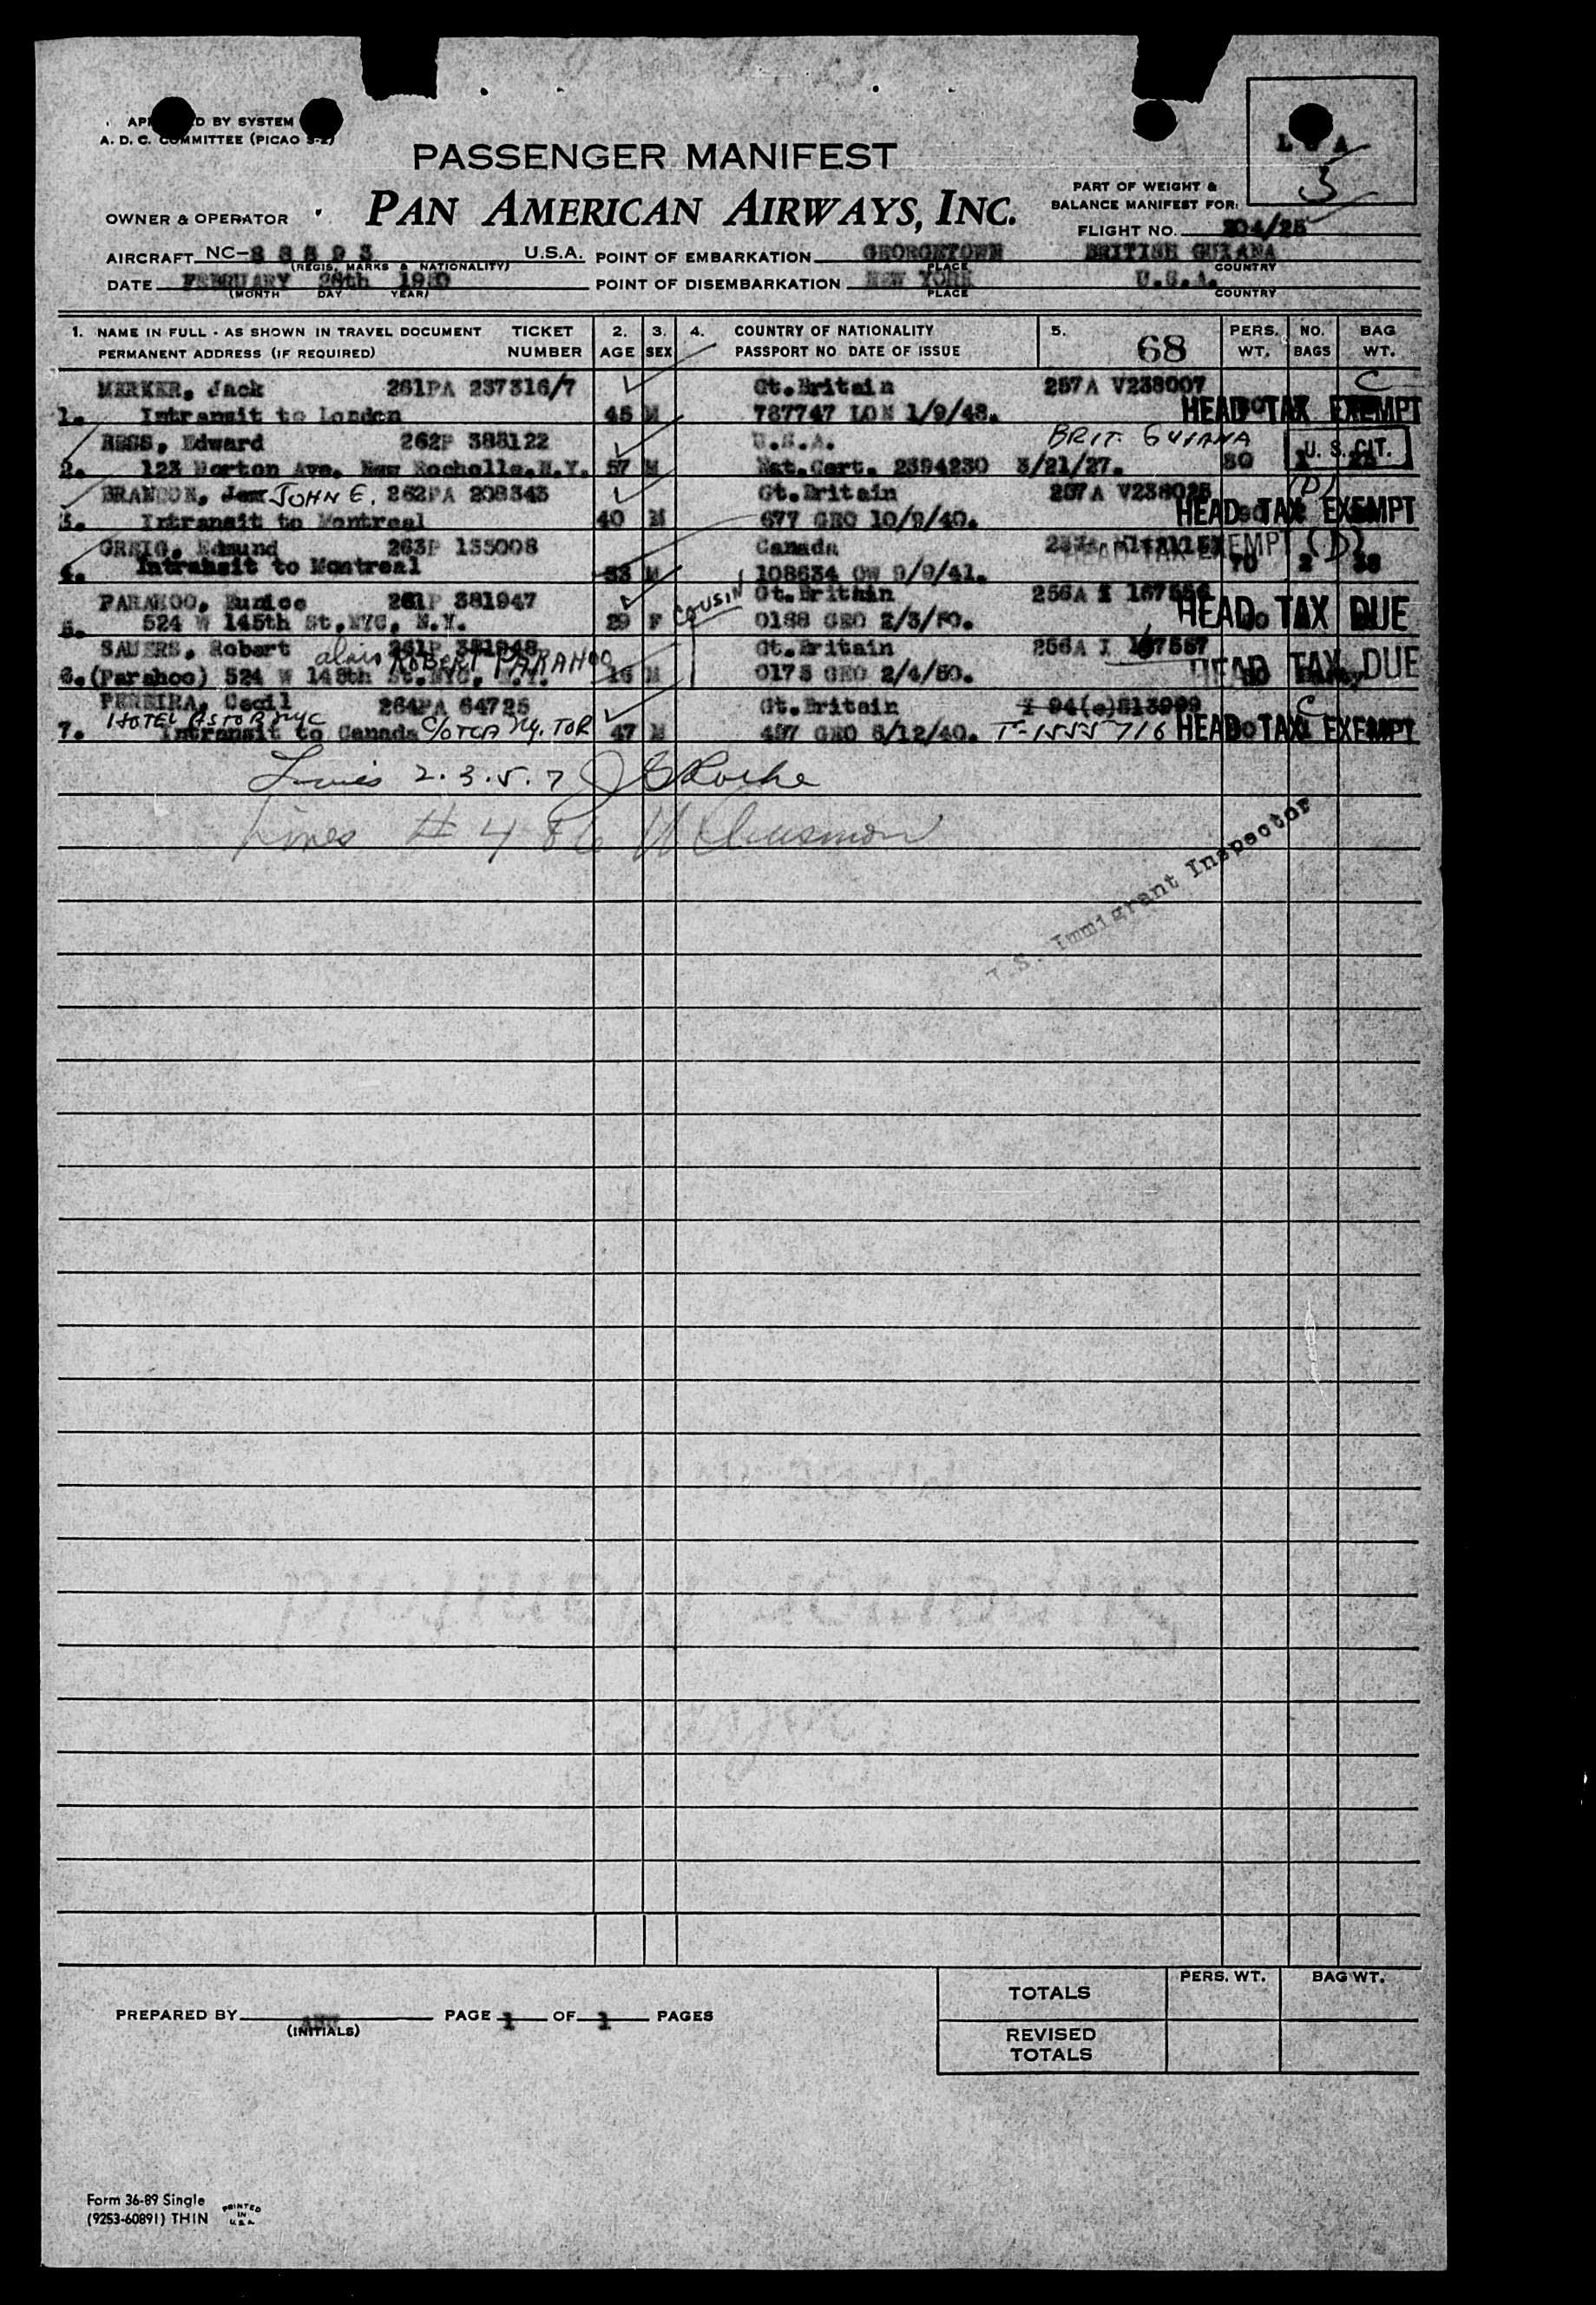 APPROVED BY SYSTEM
A. D. C. COMMITTEE (PICAO S-2)
PASSENGER MANIFEST
PAN AMERICAN AIRWAYS, INC.
OWNER & OPERATOR
PART OF WEIGHT &
BALANCE MANIFEST FOR:
3
FLIGHT NO. 204/25
AIRCRAFT NC-88893 U.S.A. POINT OF EMBARKATION GEORGETOWN BRITISH GUIANA
(REGIS. MARKS & NATIONALITY) PLACE COUNTRY
DATE FEBRUARY 26th 1950 POINT OF DISEMBARKATION NEW YORK U.S.A.
(MONTH DAY YEAR) PLACE COUNTRY
1. NAME IN FULL - AS SHOWN IN TRAVEL DOCUMENT TICKET 2. 3. 4. COUNTRY OF NATIONALITY 5. 68 PERS. NO. BAG
PERMANENT ADDRESS (IF REQUIRED) NUMBER AGE SEX PASSPORT NO. DATE OF ISSUE WT. BAGS WT.
MERKER, Jack 261PA 237316/7 Gt.Britain 257A V238007 C
1. Intransit to London 45 M 787747 LON 1/9/48. HEAD TAX EXEMPT
Edward 262P 385122 U.S.A. BRIT. GUIANA
2. 123 Horton Ave. New Rochelle.N.Y. 57 M Nat.Cert. 2394230 3/21/27. 80 U. S. CIT.
BRANDON, JOHN E. 262PA 208343 Gt.Britain 257A V238025 (D)
3. Intransit to Montreal 40 M 677 GEO 10/9/40. HEAD TAX EXEMPT
GREIG, Edmund 263P 135008 Canada EXEMPT (D)
4. Intransit to Montreal 53 M 108634 OW 9/9/41. 70 2 38
PARAHOO, Eunice 261P 381947 COUSIN Gt.Britain 256A I 167556
5. 524 W 145th St,NYC, N.Y. 29 F 0188 GEO 2/3/50. HEAD TAX DUE
SAUERS, Robert 261P 381948 alias ROBERT PARAHOO Gt.Britain 256A I 167557
6.(Parahoo) 524 W 145th St.NYC, N.Y. 16 M 0175 GEO 2/4/50. HEAD TAX DUE
PEREIRA, Cecil 264PA 64725 Gt.Britain I 94(e)813999 C
HOTEL ASTOR NYC
7. Intransit to Canada C/O TCA Ny. TOR 47 M 497 GEO 8/12/40. T-1555716 HEAD TAX EXEMPT
2.3.5.7 J Roche
Lines # 4 & 6
U.S. Immigrant Inspector
PREPARED BY PAGE 1 OF 1 PAGES
(INITIALS)
PERS. WT. BAG WT.
TOTALS
REVISED
TOTALS
Form 36-89 Single
(9253-60891) THIN
PRINTED
IN
U.S.A.